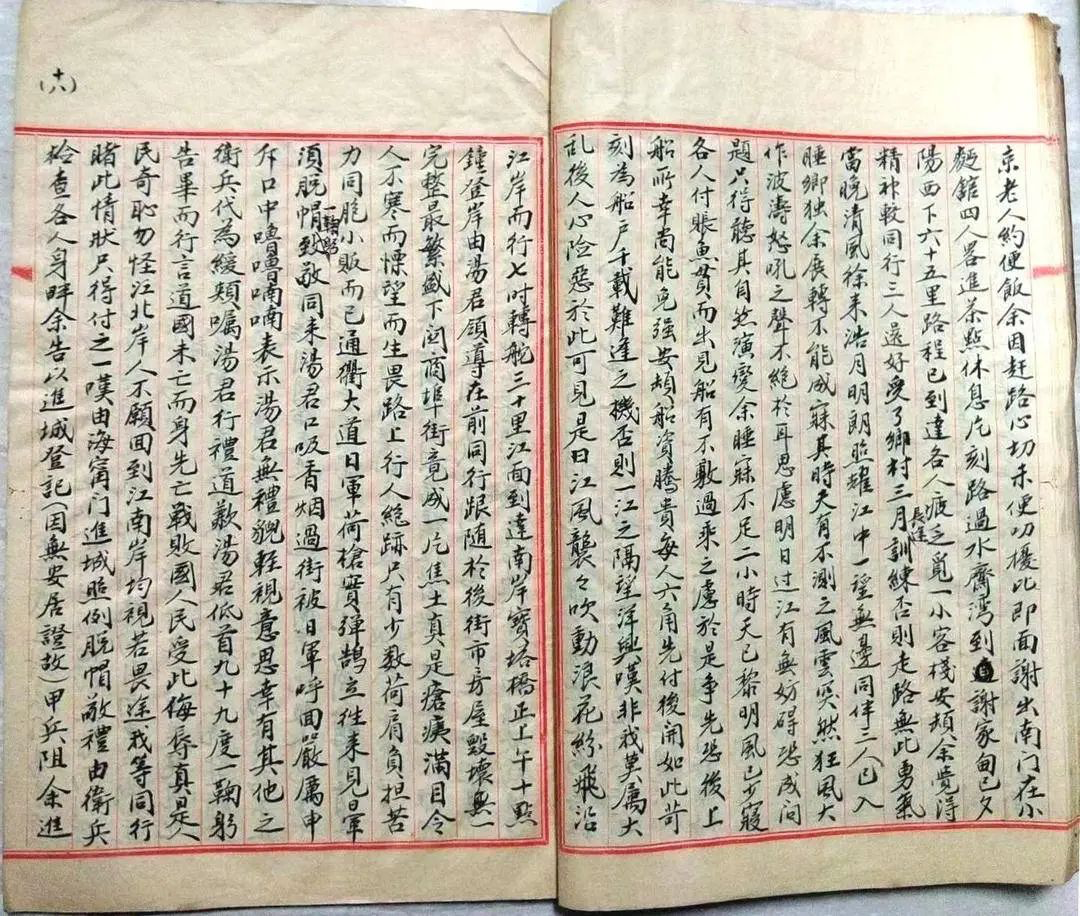 京老人約便飯余因赶路心切未便叨擾比即面謝出南門在小
麵館四人畧進茶點休息片刻路過水齋灣到謝家甸已夕
陽西下六十五里路程已到達各人疲乏覓一小客棧安頓余覺得
精神較同行三人還好受了鄉村三月長途訓練否則走路無此勇氣
當晚清風徐来浩月明朗照耀江中一望無邊同伴三人已入
睡鄉独余展轉不能成寐其時天有不測之風雲突然狂風大
作波濤怒吼之聲不絕於耳思慮明日过江有無妨碍恐成问
題只得聽其自然演變余睡寐不足二小時天已黎明風已少寢
各人付賬魚貫而出見船有不敷過乘之慮於是争先恐後上
船所幸尚能勉强安頓船資腾貴每人六角先付後開如此苛
刻為船户千載難逢之機否則一江之隔望洋興嘆非我莫屬大
乱後人心险惡於此可見是日江風襲々吹動浪花紛飛沿
(十六)
江岸而行七时轉舵三十里江面到達南岸寶塔橋正上午十點
鐘登岸由湯君領導在前同行跟随於後街市房屋毀壞無一
完整最繁盛下関商埠街竟成一片焦土真是瘡痍滿目令
人不寒而慄望而生畏路上行人絶跡只有少数荷肩負担苦
力同胞小贩而已通衢大道日軍荷槍實弹鹄立往来見日軍
須脱帽一鞠躬致敬同来湯君口吸香烟過街被日軍呼面嚴厲申
斥口中嚕嚕喃喃表示湯君無禮貌軽視意思幸有其他之
衛兵代為緩頰嘱湯君行禮道歉湯君低首九十九度一鞠躬
告畢而行言道國未亡而身先亡戰敗國人民受此侮辱真是人
民奇恥勿怪江北岸人不願回到江南岸均視若畏途我等同行
睹此情狀只得付之一嘆由海甯门進城照例脱帽敬禮由衛兵
检查各人身畔余告以進城登記(因無安居證故)甲兵阻余進